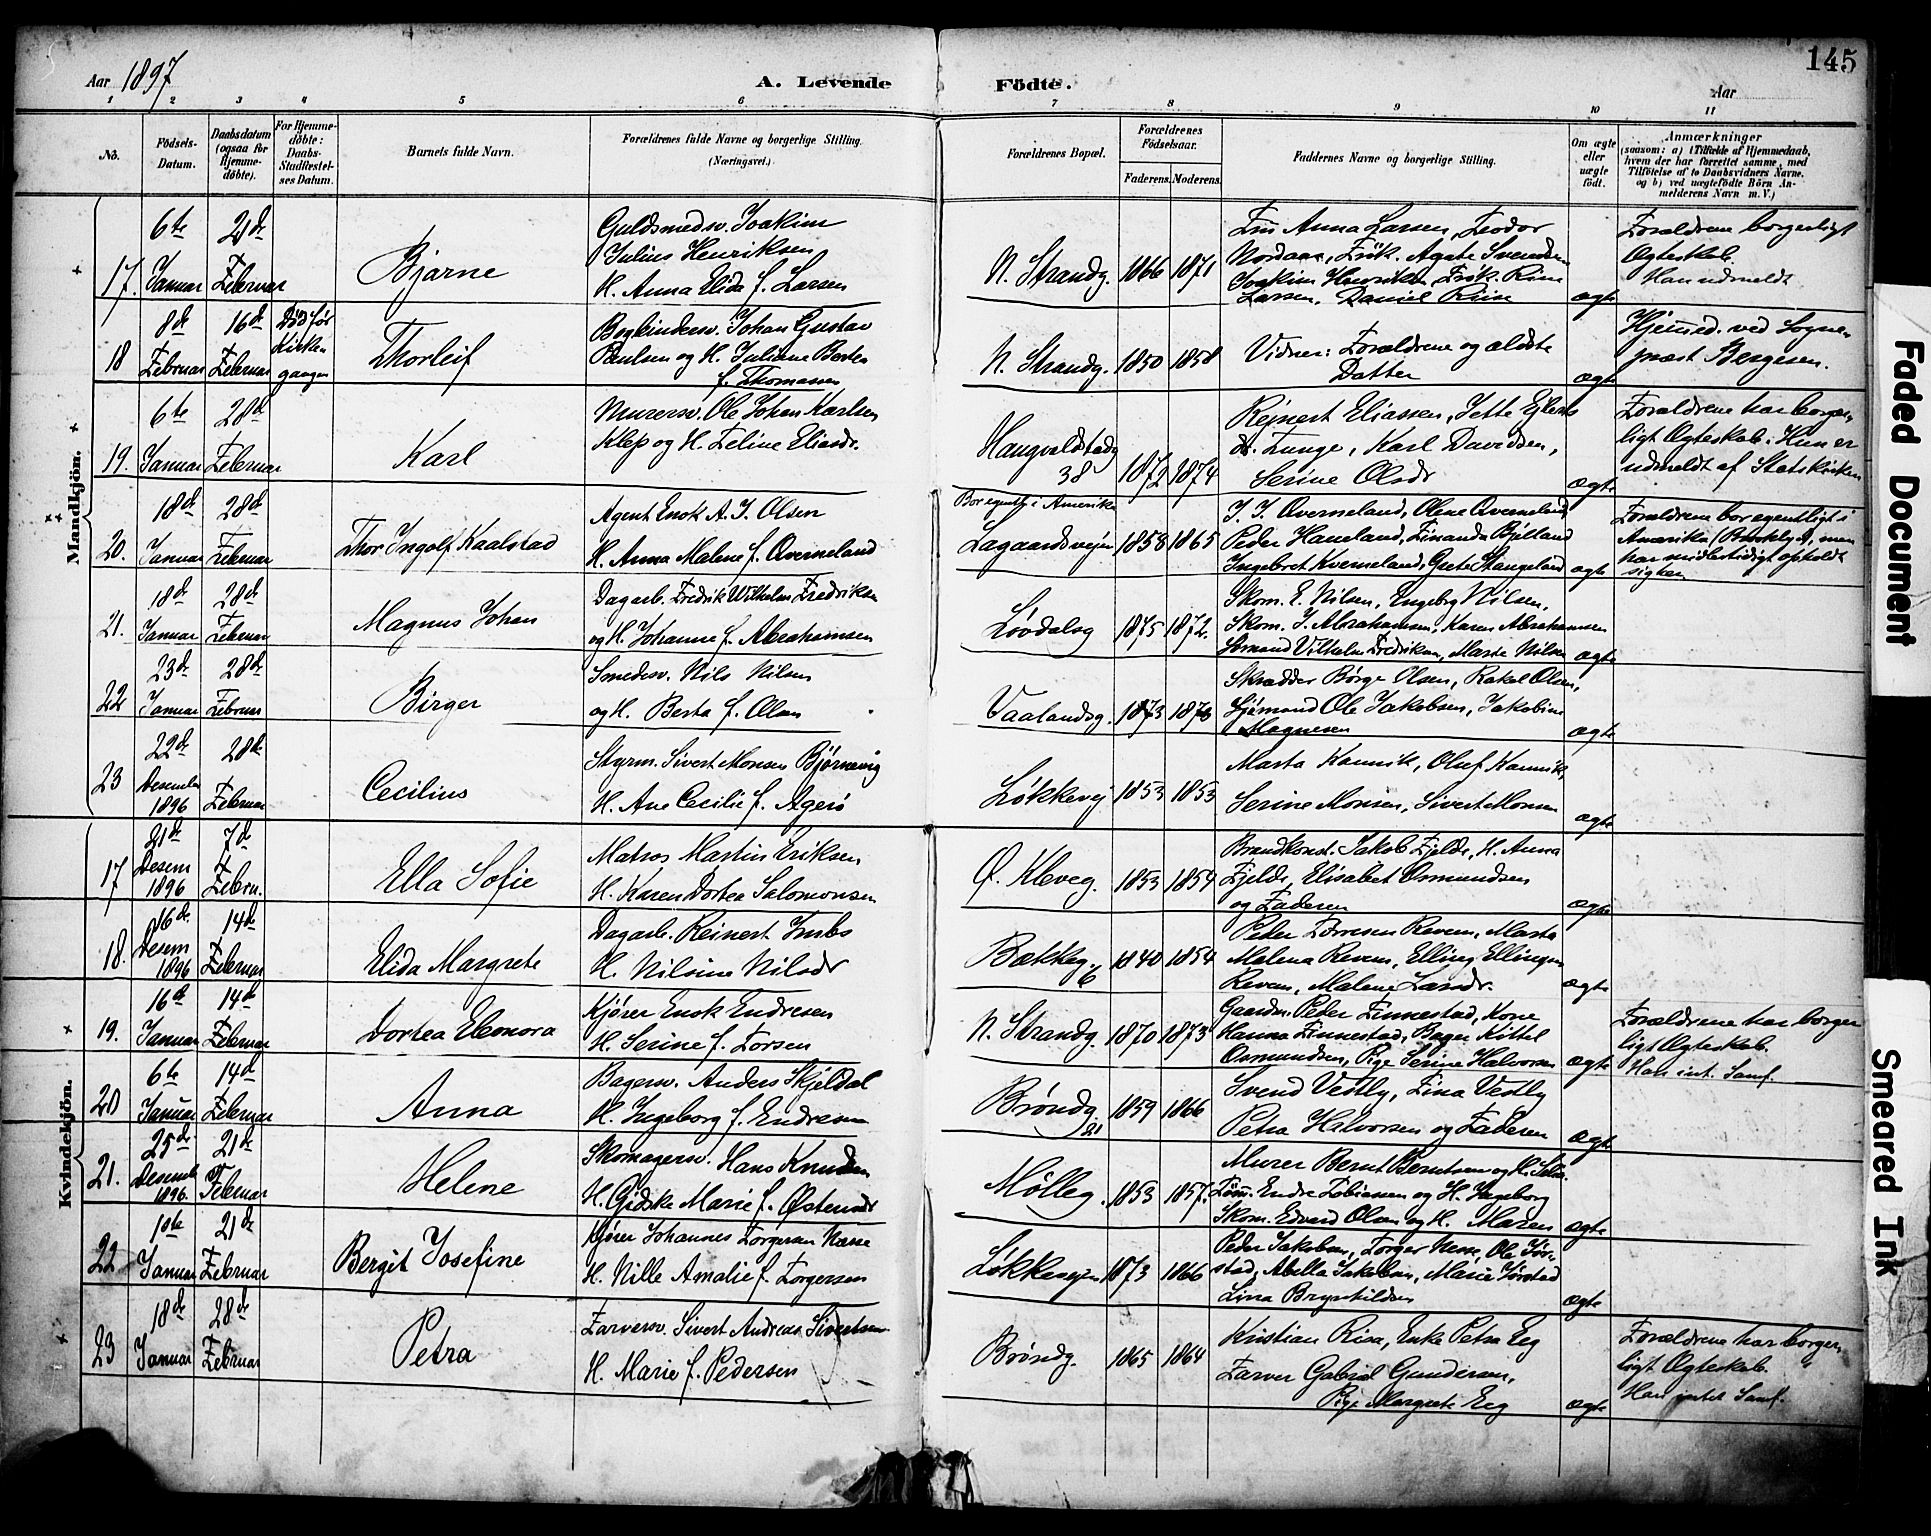 Aar 1897
A. Levende Födte.
Aar
145
1 2 3 4 5 6 7 8 9 10 11
No.
Födsels-
Datum.
Daabsdatum
(ogsaa for
Hjemme-
döbte).
For Hjemme-
döbte:
Daabs-
Stadfæstel-
ses Datum.
Barnets fulde Navn.
Forældrenes fulde Navne og borgerlige Stilling.
(Næringsvei.)
Forældrenes Bopæl.
Forældrenes
Födselsaar.
Faderens. Moderens.
Faddernes Navne og borgerlige Stilling.
Om ægte
eller
uægte
födt.
Anmærkninger
(saasom: a) i Tilfælde af Hjemmedaab,
hvem der har forrettet samme, med
Tilföielse af to Daabsvidners Navne,
og b) ved uægtefödte Börn An-
melderens Navn m. V.)
Mandkjön.
17. 6te Januar
21de Februar
Bjarne
Guldsmedsv. Joakim
Julius Henriksen
H. Anna Elida f. Larsen
N. Strandg. 1866 1871
Anna Larsen, Teodor
Frøk. Agate Svendsen
Joakim Henriksen, Frøk. Rina
Larsen, Daniel
ægte
Forældrene borgerligt
Ægteskab.
Han udmeldt
18 8de Februar
16de Februar
Død før
Kirken
gangen
Thorleif
Bogbindersv. Johan Gustav
Paulsen og H. Juliane Bertea
f. Thomassen
N. Strandg. 1850 1858
Vidner: Forældrene og ældste
Datter
ægte
Hjemmed. ved Sogne-
præst Bergesen.
19. 6te Januar
28de Februar
Karl
Murersv. Ole Johan Karlsen
Klep og H. Feline Eliasdr.
Haugvaldstadg
38
1872 1874
Reinert Eliassen, Jette Ejlerts
d. Lunge, Karl Davidsen,
Serine Olsdr
ægte
Forældrene har borger-
ligt Ægteskab. Hun er
udmeldt af Statskirken
20. 18de Januar
28de Februar
Thor Ingolf Kaalstad
Agent Enok A. J. Olsen
H. Anna Malene f. Qverneland
Bor egentlig i Amerika
Lagaardsvejen 1858 1865
J. J. Qverneland, Olene Qverneland
Peder Haneland, Bjelland
Ingebret Kverneland, Grete Stangeland
ægte
Forældrene bor egentligt i
Amerika (Brooklyn), men
har midlertidigt opholdt
sig her.
21. 18de Januar
28de Februar
Magnus Johan
Dagarb. Fredrik Wilhelm Fredriksen
og H. Johanne f. Abrahamsen
Løvdalsg 1875 1872.
Skom. E. Nilsen, Engeborg Nilsen,
Skom. J. Abrahamsen, Karen Abrahamsen
Sømand Vilhelm Fredriksen, Marte Nilsen
ægte
22 23de Januar
28de Februar
Birger
Smedesv. Nils Nilsen
og H. Berta f. Olsen
Vaalandsg. 1873 1876
Skrædder Børge Olsen, Rakel Olsen,
Sjømand Ole Jakobsen, Jakobine
Magnesen
ægte
23 22de Desember 1896
28de Februar
Cecilius
Styrm. Sivert Monsen Bjørnevig
H. Ane Cecilie f. Agerø
Løkkevej 1853 1853
Marta Kannik, Oluf Kannik,
Serine Monsen, Sivert Monsen
ægte
Kvindekjön.
17 21de Desem 1896
7de Febru.
Ella Sofie
Matros Martin Eriksen
H. Karen Dortea Salomonsen
Ø. Kleveg. 1853 1854
Brandkonst. Jakob Fjelde, H. Anna
Fjelde, Elisabet Osmundsen
og Faderen
ægte
18. 16de Desem 1896
14de Februar
Elida Margrete
Dagarb. Reinert
H. Nilsine Nilsdr
Bækkeg. 6
1840 1854
Peder Revem, Marta
Malena Revem, Elling Ellingsen
Revem, Malene
ægte
19. 16de Januar
14de Februar
Dortea Eleonora
Kjører Enok Endresen
H. Serine f. Torsen
N. Strandg. 1870 1873
Gaardm. Peder Finnestad, Kone
Hanna Finnestad, Bager Kittel
Osmundsen, Pige Serine Halvorsen
ægte
Forældrene har borger
ligt Ægteskab.
Han int. Samf.
20 6te Januar
14de Februar
Anna
Bagersv. Anders Skjeldal
H. Ingeborg f. Endresen
Brøndg. 21
1859 1866
Svend Vestly, Lina Vestly
Petra Halvorsen og Faderen
ægte
21. 25de Desemb 1896.
21de Februar
Helene
Skomagersv. Hans Knudsen
H. Gidske Marie f. Østensdr
Mølleg. 1853 1857.
Murer Bernt Berntsen og H.
Tøm. Endre Tobiassen og H. Ingeborg
Skom. Edvard Olsen og H. Maren
ægte
22 10te Januar
21de Februar
Bergit Josefine
Kjører Johannes Torgersen Næsse
H. Nille Amalie f. Torgersen
Løkkevejen 1873 1866
Peder Jakobsen, Torger Nesse, Ole Jør-
stad, Abella Jakobsen, Marie Jørstad
Lina Brynhildsen
ægte
23 18de Januar
28de Februar
Petra
Farversv. Sivert Andreas Sivertsen
H. Marie f. Pedersen
Brøndg. 1865 1864
Kristian Risa, Enke Petra Eeg
Farver Gabriel Gundersen,
Pige Margrete Eeg
ægte
Forældrene har borger-
ligt Ægteskab.
Han intet Samf.
Faded Document
Smeared Ink